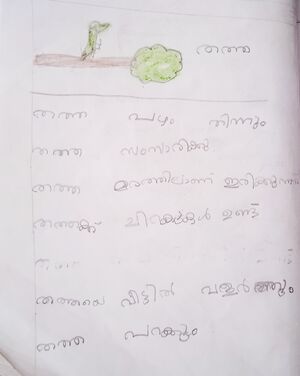 തത്ത
തത്ത പഴം തിന്നും
തത്ത സംസാരിക്കു
തത്ത മരത്തിലാണ് ഇരിക്കുന്നത്
തത്തക്ക് ചിറകുകൾ ഉണ്ട്
തത്തയെ വീട്ടിൽ വളർത്തും
തത്ത പറക്കും